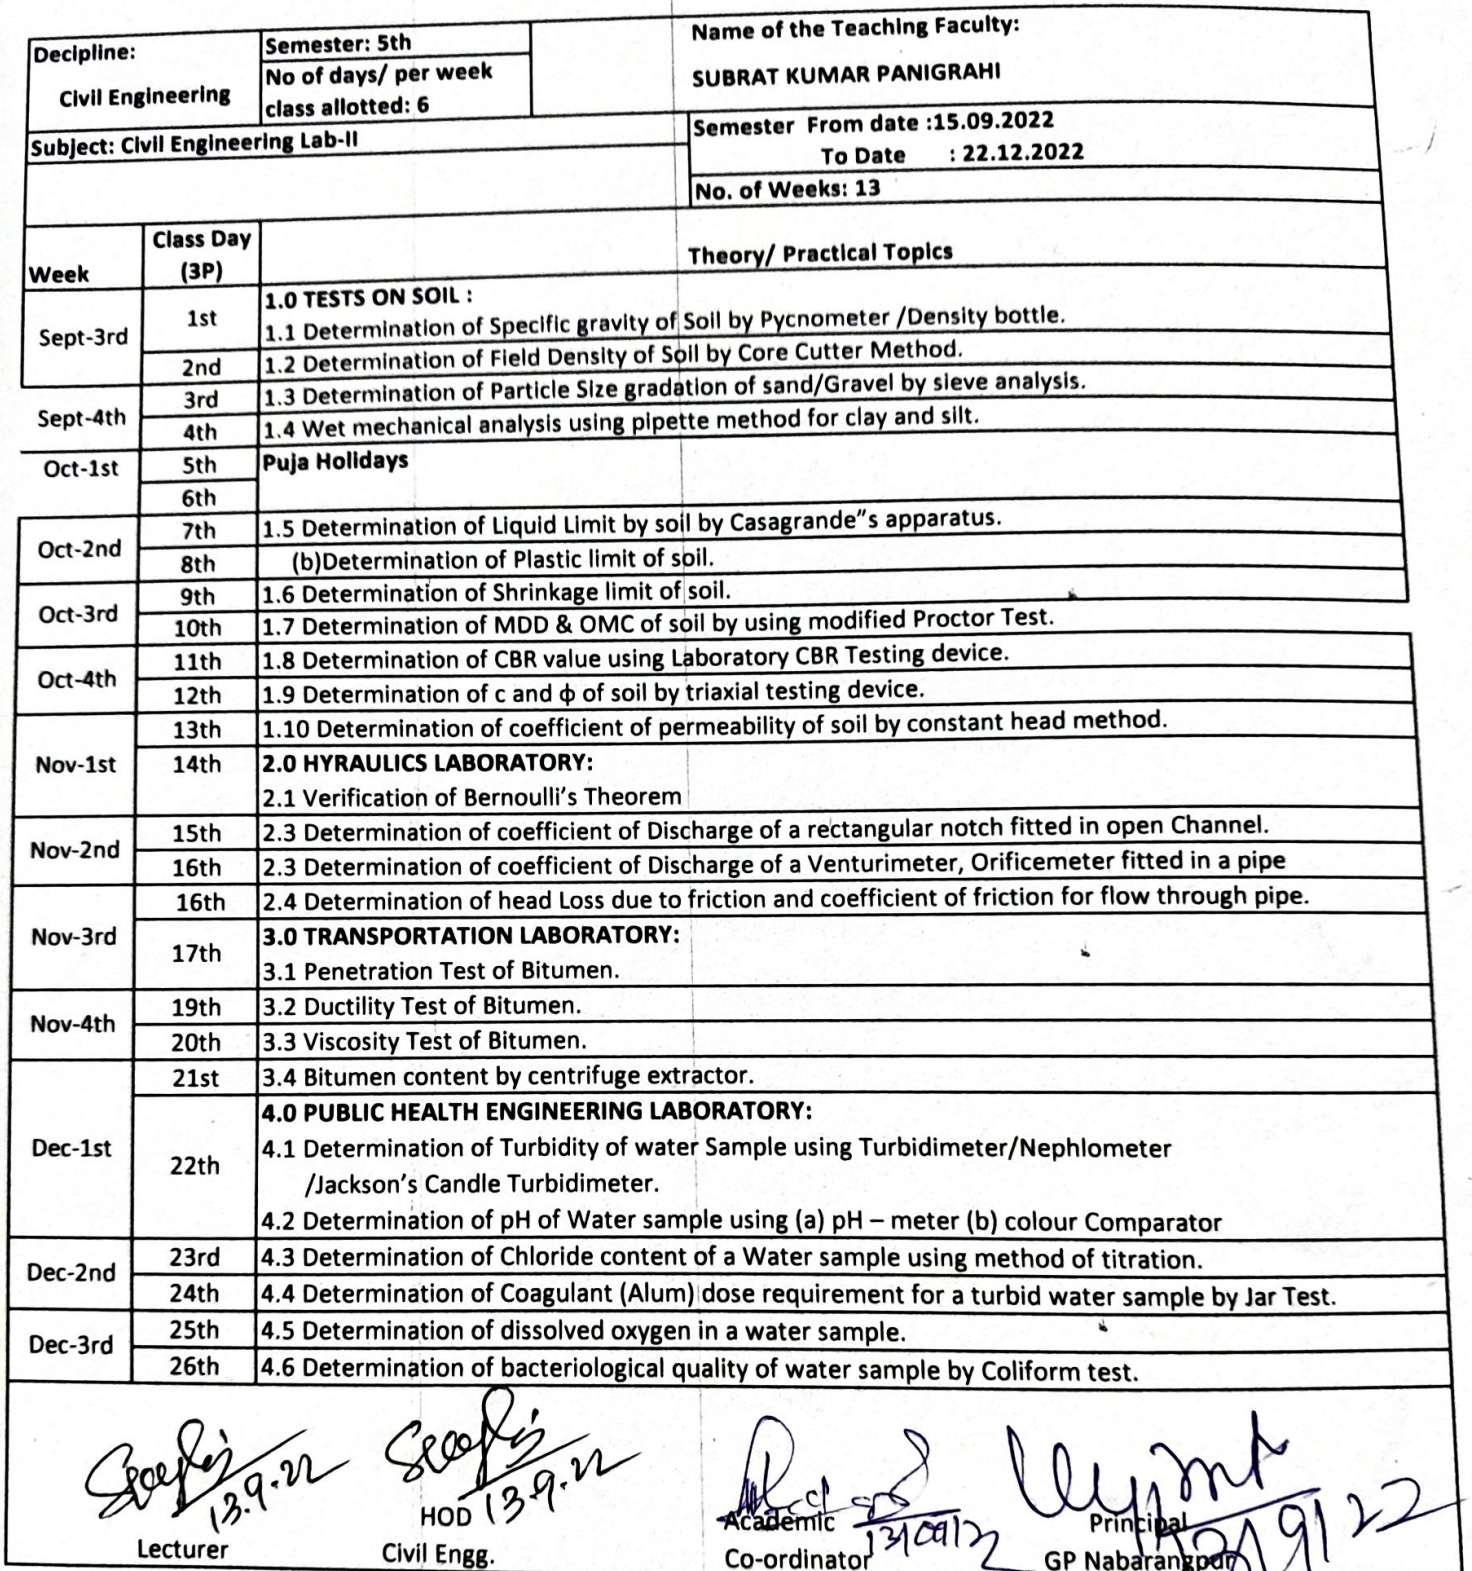 Decipline:
Civil Engineering
Semester: 5th
No of days/ per week
class allotted: 6
Name of the Teaching Faculty:
SUBRAT KUMAR PANIGRAHI
Subject: Civil Engineering Lab-II
Semester From date :15.09.2022
To Date : 22.12.2022
No. of Weeks: 13
Week
Class Day
(3P)
Theory/ Practical Topics
Sept-3rd
1st
1.0 TESTS ON SOIL :
1.1 Determination of Specific gravity of Soil by Pycnometer /Density bottle.
2nd
1.2 Determination of Field Density of Soil by Core Cutter Method.
Sept-4th
3rd
1.3 Determination of Particle Size gradation of sand/Gravel by sieve analysis.
4th
1.4 Wet mechanical analysis using pipette method for clay and silt.
Oct-1st
5th
Puja Holidays
6th
Oct-2nd
7th
1.5 Determination of Liquid Limit by soil by Casagrande"s apparatus.
8th
(b)Determination of Plastic limit of soil.
Oct-3rd
9th
1.6 Determination of Shrinkage limit of soil.
10th
1.7 Determination of MDD & OMC of soil by using modified Proctor Test.
Oct-4th
11th
1.8 Determination of CBR value using Laboratory CBR Testing device.
12th
1.9 Determination of c and ф of soil by triaxial testing device.
Nov-1st
13th
1.10 Determination of coefficient of permeability of soil by constant head method.
14th
2.0 HYRAULICS LABORATORY:
2.1 Verification of Bernoulli's Theorem
Nov-2nd
15th
2.3 Determination of coefficient of Discharge of a rectangular notch fitted in open Channel.
16th
2.3 Determination of coefficient of Discharge of a Venturimeter, Orificemeter fitted in a pipe
Nov-3rd
16th
2.4 Determination of head Loss due to friction and coefficient of friction for flow through pipe.
17th
3.0 TRANSPORTATION LABORATORY:
3.1 Penetration Test of Bitumen.
Nov-4th
19th
3.2 Ductility Test of Bitumen.
20th
3.3 Viscosity Test of Bitumen.
Dec-1st
21st
3.4 Bitumen content by centrifuge extractor.
22th
4.0 PUBLIC HEALTH ENGINEERING LABORATORY:
4.1 Determination of Turbidity of water Sample using Turbidimeter/Nephlometer
/Jackson's Candle Turbidimeter.
4.2 Determination of pH of Water sample using (a) pH – meter (b) colour Comparator
Dec-2nd
23rd
4.3 Determination of Chloride content of a Water sample using method of titration.
24th
4.4 Determination of Coagulant (Alum) dose requirement for a turbid water sample by Jar Test.
Dec-3rd
25th
4.5 Determination of dissolved oxygen in a water sample.
26th
4.6 Determination of bacteriological quality of water sample by Coliform test.
13.9.22
Lecturer
13.9.22
HOD
Civil Engg.
13/09/22
Academic
Co-ordinator
Principal
GP Nabarangpur